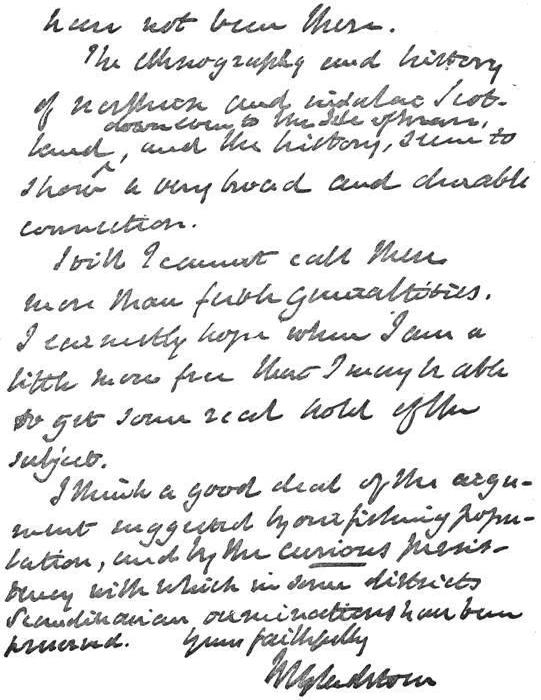 have not been there.
The ethnography and history
of northern and insular Scot-
down even to the Isle of Man,
land, and the history, seem to
show a very broad and durable
connection.
Still I cannot call these
more than feeble generalities.
I earnestly hope when I am a
little more free that I may be able
to get some real hold of the
subject.
I think a good deal of the argu-
ment suggested by our fishing popu-
lation, and by the curious persis-
tency with which in some districts
Scandinavian denominations have been
preserved. Yours faithfully
WEGladstone